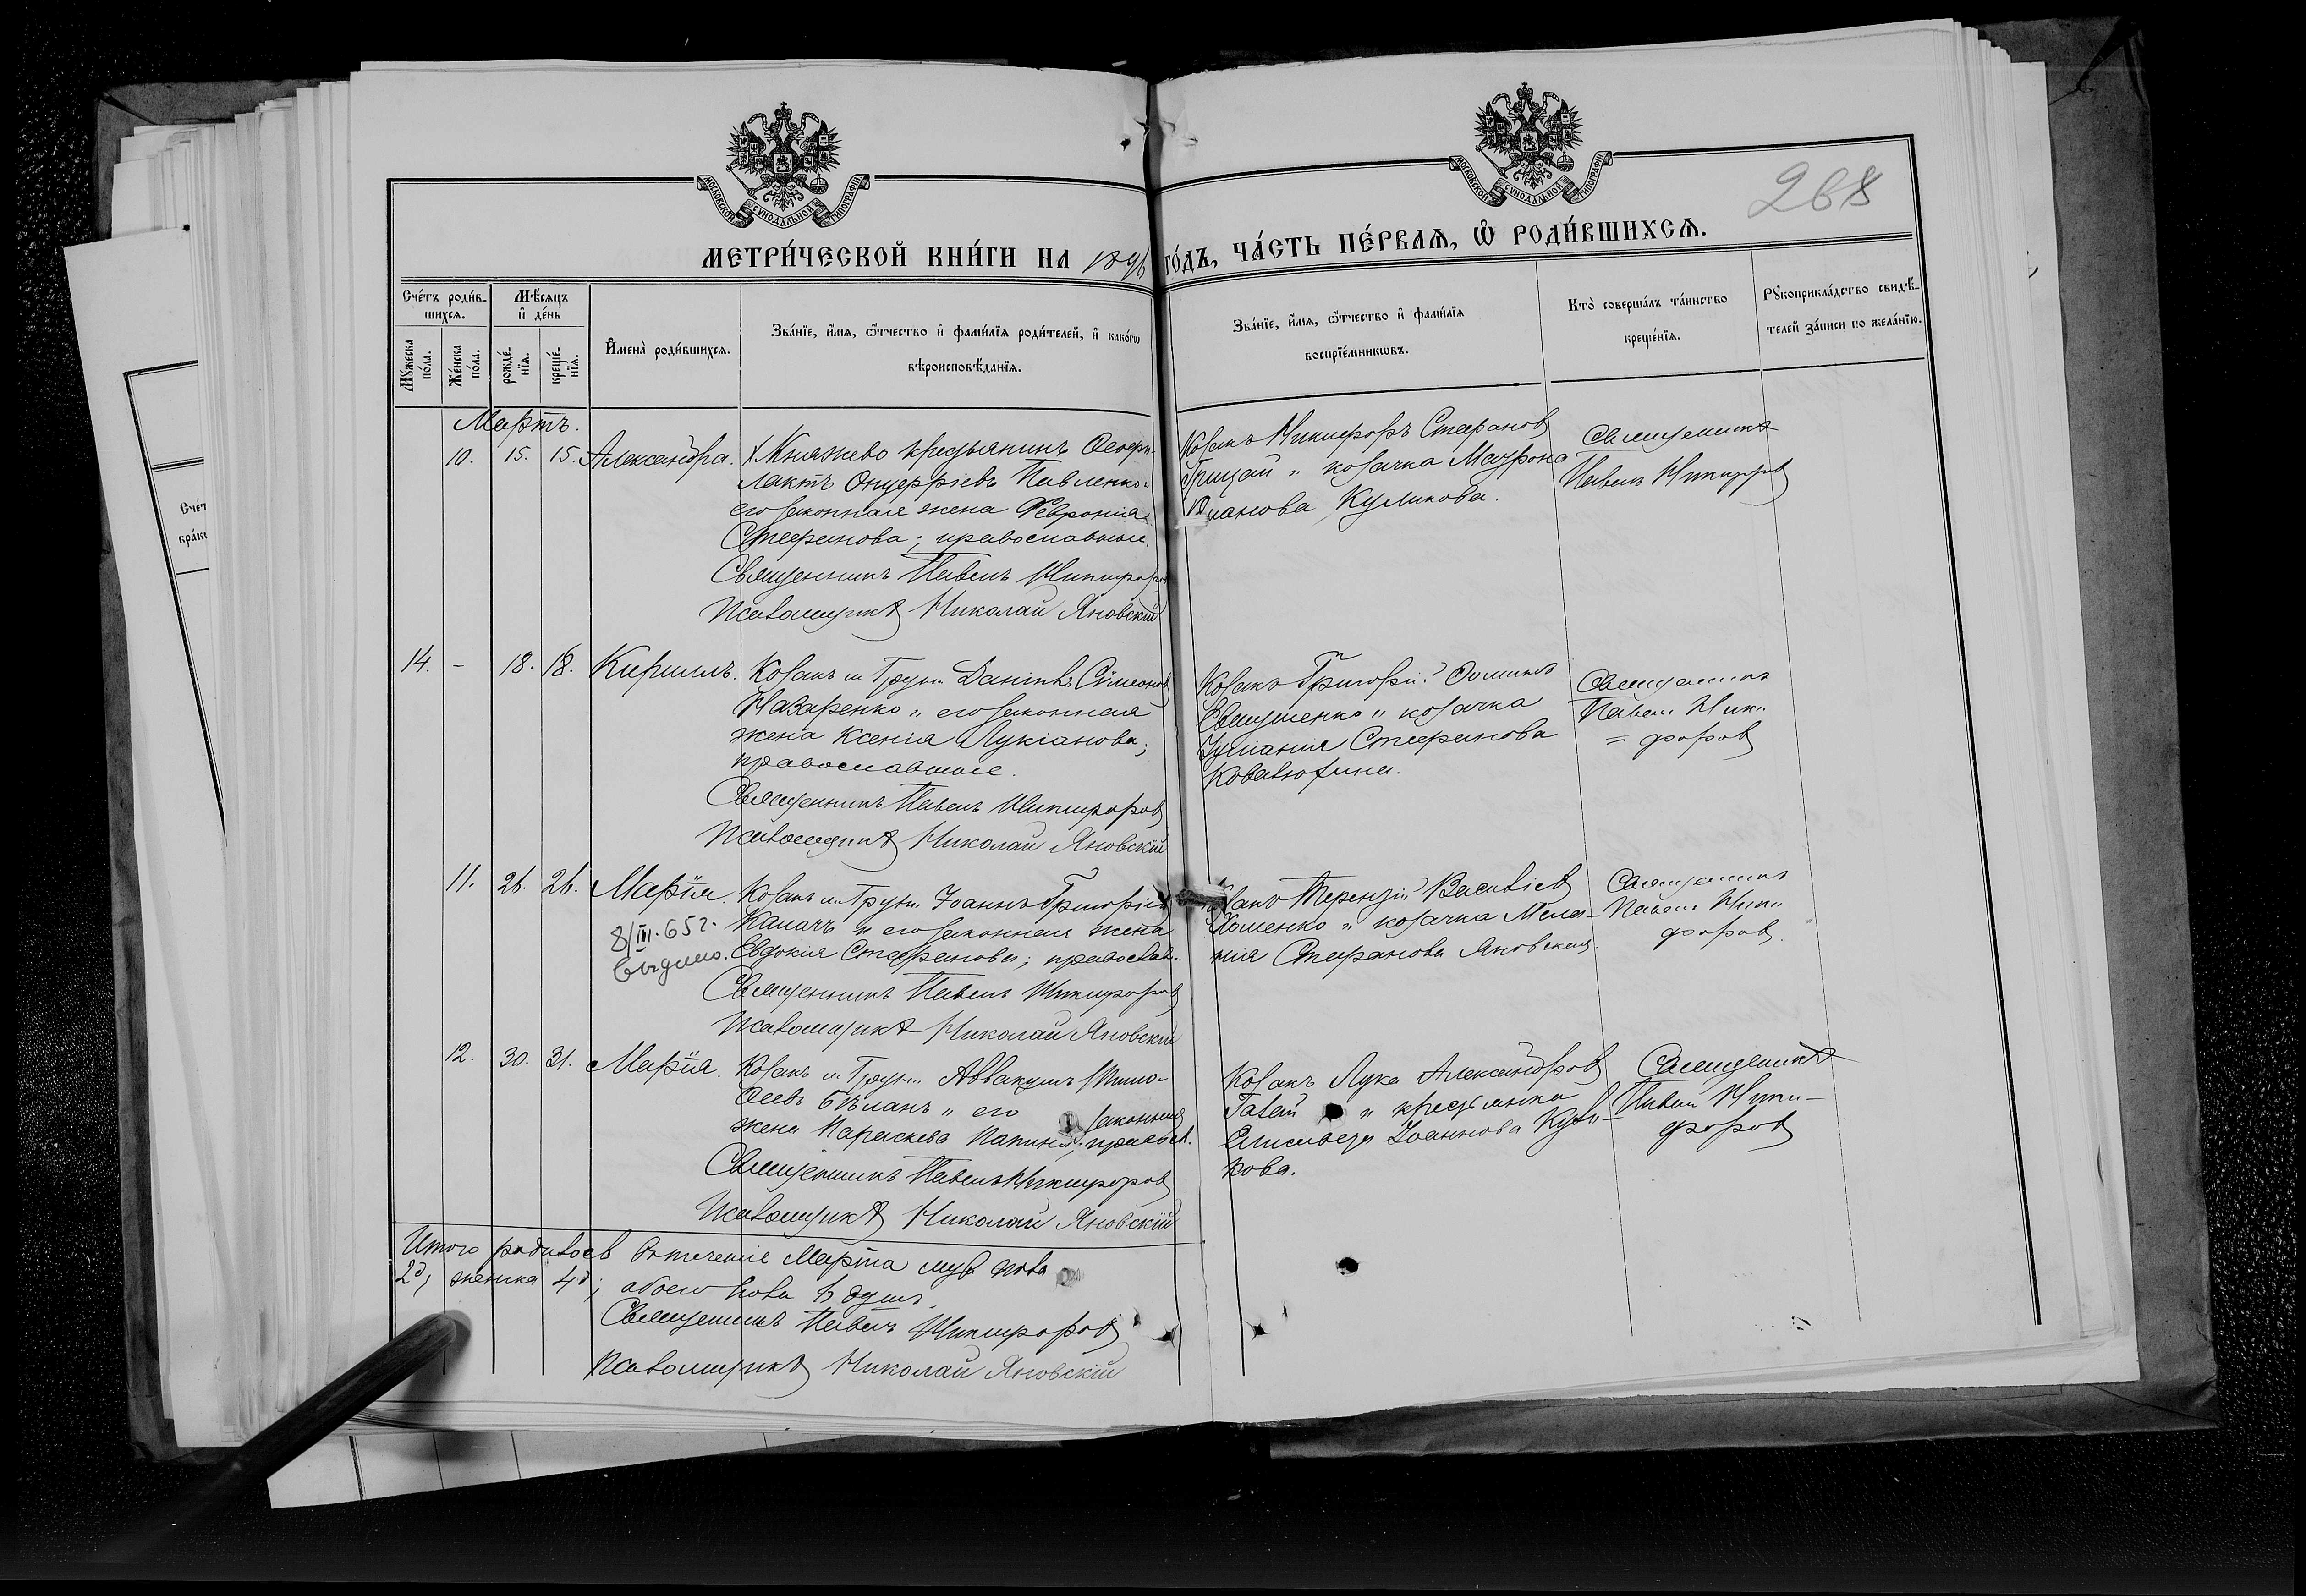 МОСКОВСКОЙ СУНОДАЛЬНОЙ ТИПОГРАФІИ
МОСКОВСКОЙ СУНОДАЛЬНОЙ ТИПОГРАФІИ
268
МЕТРИ́ЧЕСКОЙ КНИ́ГИ НА 1896 ГО́ДЪ, ЧА́СТЬ ПЕ́РВАѦ, Ѡ РОДИ́ВШИХСѦ.
Сче́тъ роди́в-
шихсѧ.
Мѣ́сѧцъ
и҆ де́нь
Мꙋ́жеска по́ла.
Же́нска по́ла.
рожде́-
нїѧ.
креще́-
нїѧ.
И҆мена̀ роди́вшихсѧ.
Зва́нїе, и҆́мѧ, ѻ҆́тчество и҆ фами́лїѧ роди́телей, и҆ како́гѡ
вѣроисповѣ́данїѧ.
Зва́нїе, и҆́мѧ, ѻ҆́тчество и҆ фами́лїѧ
воспрїе́мникѡвъ.
Кто̀ соверша́лъ та́инство
креще́нїѧ.
Рꙋкоприкла́дство свидѣ́-
телей за́писи по жела́нїю.
Мартъ.
10. 15. 15. Александра. Княжево крестьянинъ Ѳеофи-
лактъ Онуфріевъ Павленко и
его законная жена Февронія
Стефанова; православные.
Священникъ Павелъ Никифоров
Псаломщикъ Николай Яновскій
Козакъ Никифоръ Стефанов
Грицай и козачка Матрона
Куликова.
Священникъ
Павелъ Никифоров
14. - 18. 18. Кириллъ. Козакъ Даніилъ Сѵмеонов
Назаренко и его законная
жена Ксенія Лукіанова;
православные.
Священникъ Павелъ Никифоров
Псаломщикъ Николай Яновскій
Козакъ Григорій
козачка
Іуліанія Стефанова
Священникъ
Павелъ Ники-
= форов
11. 26. 26. Марія. Козакъ Іоаннъ Григоріев
Калачъ и его законная жена
Евдокія Стефанова; православ.
8/III.65г.
выдано.
Священникъ Павелъ Никифоров
Псаломщикъ Николай Яновскій
Терентій Василіев
Хоменко и козачка Мела-
нія Стефанова Яновская.
Священникъ
Павелъ Ники-
форов.
12. 30. 31. Марія. Козакъ Аввакумъ Тимо-
ѳеевъ Бѣланъ и его законная
жена Параскева; правосл.
Священникъ Павелъ Никифоров
Псаломщикъ Николай Яновскій
Козакъ Лука Александров
и крестьянка
Елисавета Іоаннова Кули-
кова.
Священникъ
Павелъ Ники-
форов
Итого родилось въ теченіе Марта муж. пола
2д; женска 4д; обоего пола 6 душъ.
Священникъ Павелъ Никифоров
Псаломщикъ Николай Яновскій